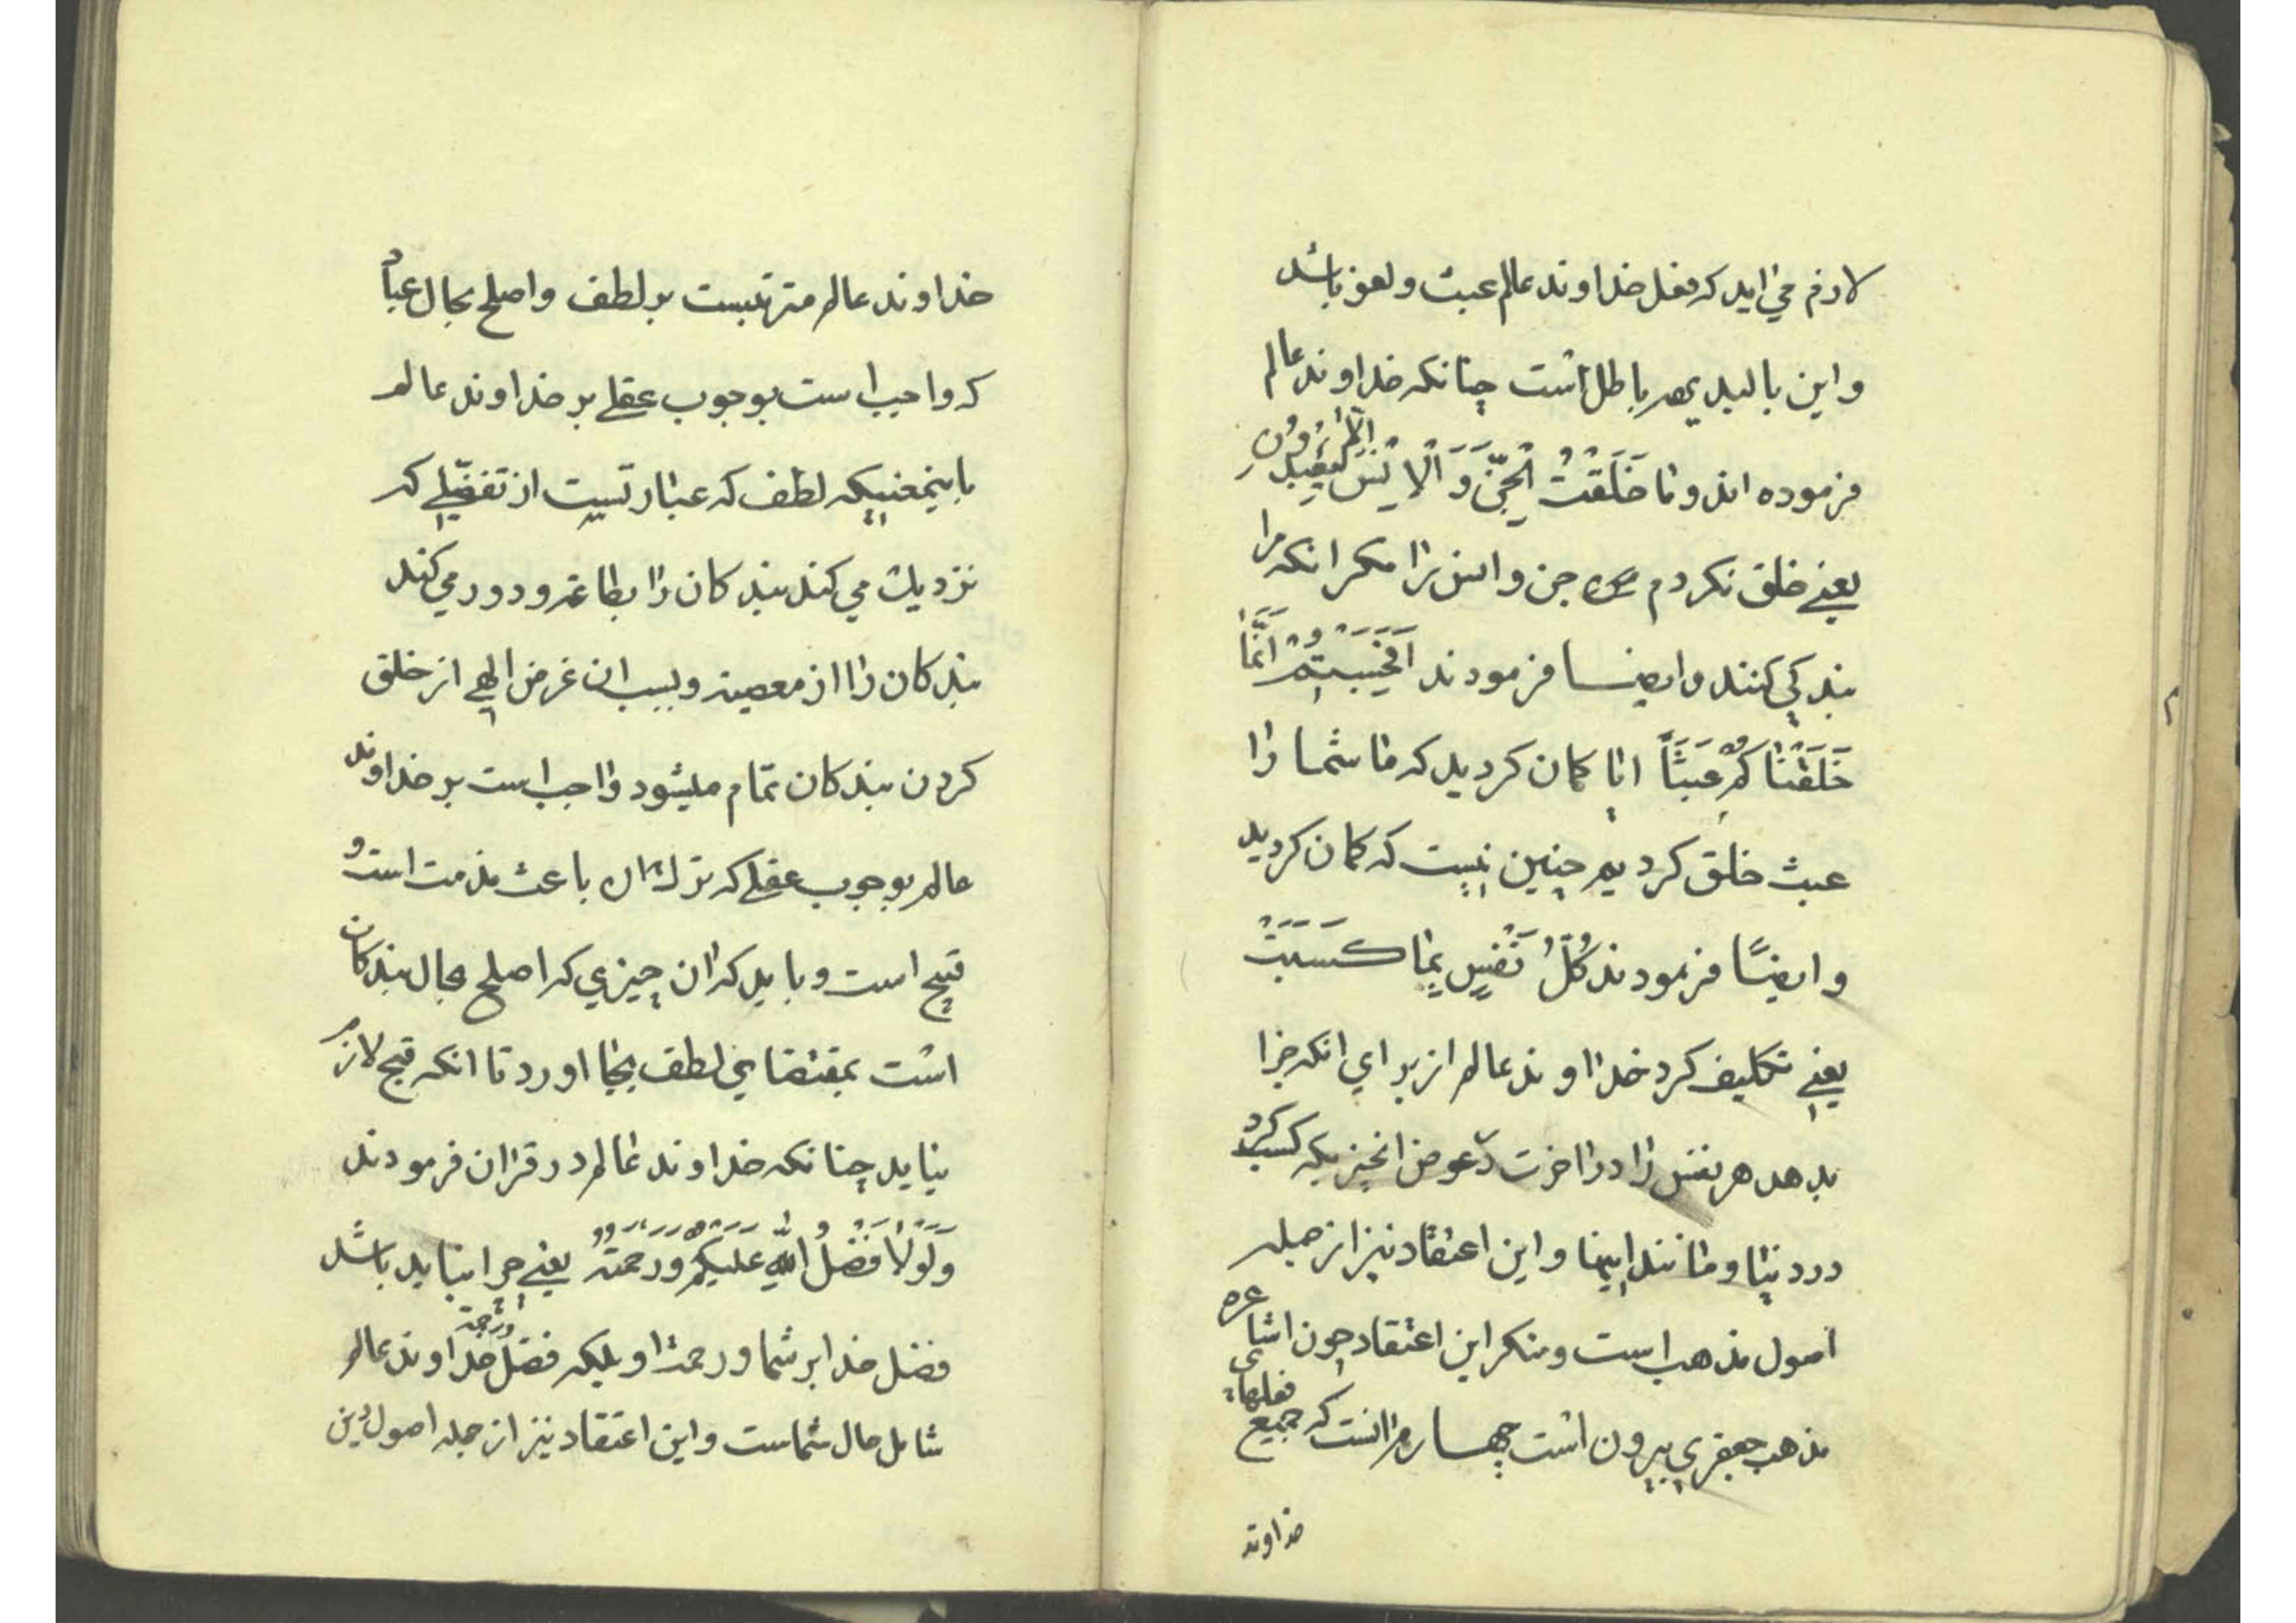 لازم می اید که فعل خداوند عالم عبث و لغو باشد
و این بالبدیهه باطل است چنانکه خداوند عالم
فرموده اند و ما خَلَقْتُ الْجِنَّ وَ الْاِنْسَ اِلّا لِیَعْبُدُونِ
یعنے خلق نکردم من جن و انس را مکر انکه مرا
بندکی کنند و ایضا فرمودند اَفَحَسِبْتُمْ اَنَّمَا
خَلَقْنَاکُمْ عَبَثًا ایا کمان کردید که ما شما را
عبث خلق کردیم چنین نیست که کمان کردید
و ایضًا فرمودند کُلُّ نَفْسٍ بِمَا کَسَبَتْ
یعنے تکلیف کرد خداوند عالم از برای انکه جزا
بدهد هر نفس را در اخرت عوض انچیزیکه کسب کرد
در دنیا و مانند اینها و این اعتقاد نیز از جمله
اصول مذهب است و منکر این اعتقاد چون اشاعره
مذهب جعفری بیرون است چهارم انست که جمیع فعلهای
خداوند
خداوند عالم مترتبست بر لطف و اصلح بحال عباد
که واجب است بوجوب عقلے بر خداوند عالم
باینمعنیکه لطف که عبارتست از تفضّلے که
نزدیك می کند بندکان را بطاعة و دور می کند
بندکان را از معصیة و بسبب ان غرض الهی از خلق
کردن بندکان تمام میشود واجب است بر خداوند
عالم بوجوب عقلے که ترك ان باعث مذمت است و
قبیح است و باید که ان چیزی که اصلح بحال بندکان
است بمقتضای لطف بجا اورد تا انکه قبح لازم
نیاید چنانکه خداوند عالم در قران فرمودند
وَلَوْلَا فَضْلُ اللّٰهِ عَلَیْکُمْ وَرَحْمَتُهُ یعنے چرا نباید باشد
فضل خدا بر شما و رحمت او بلکه فضل و رحمة خداوند عالم
شامل حال شماست و این اعتقاد نیز از جمله اصول دین